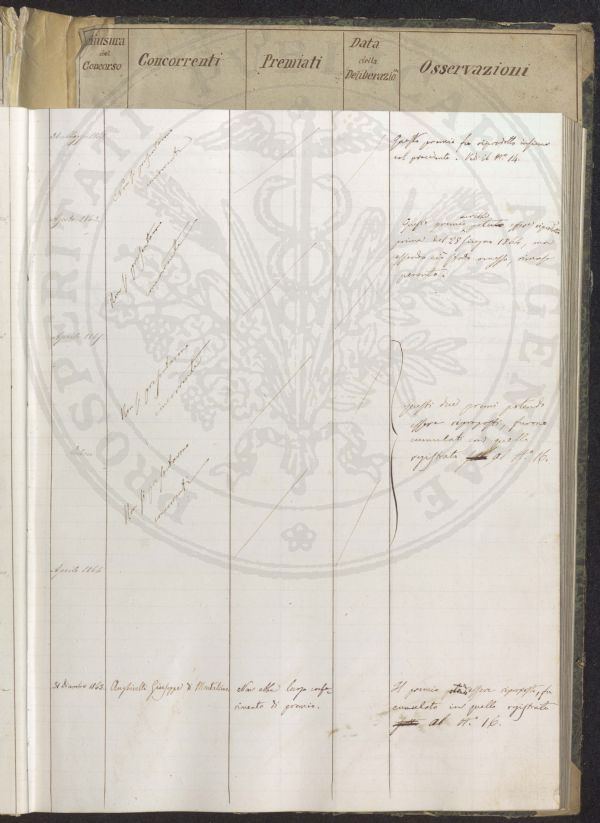 Chiusura
del
Concorso
Concorrenti
Premiati
Data
della
Deliberazione
Osservazioni
Non si presentarono
concorrenti
Questo premio fu riprodotto insieme
col precedente. Vedi il N.° 14.
Agosto 1863
Non si presentarono
concorrenti
Questo premio potuto esser riprodotto
prima del 28 Giugno 1864, ma
essendo ciò stato omesso, rimase
perento.
Aprile
Non si presentarono
concorrenti
Non si presentarono
concorrenti
Questi due premi potendo
essere riproposti, furono
cumulati con quello
registrato al N.° 16.
Aprile 1864
31 Dicembre 1863
Giuseppe di
Non ebbe luogo confe
rimento di premio.
Il premio essere riproposto, fu
cumulato in quello registrato
al N.° 16.
PROSPERITATI